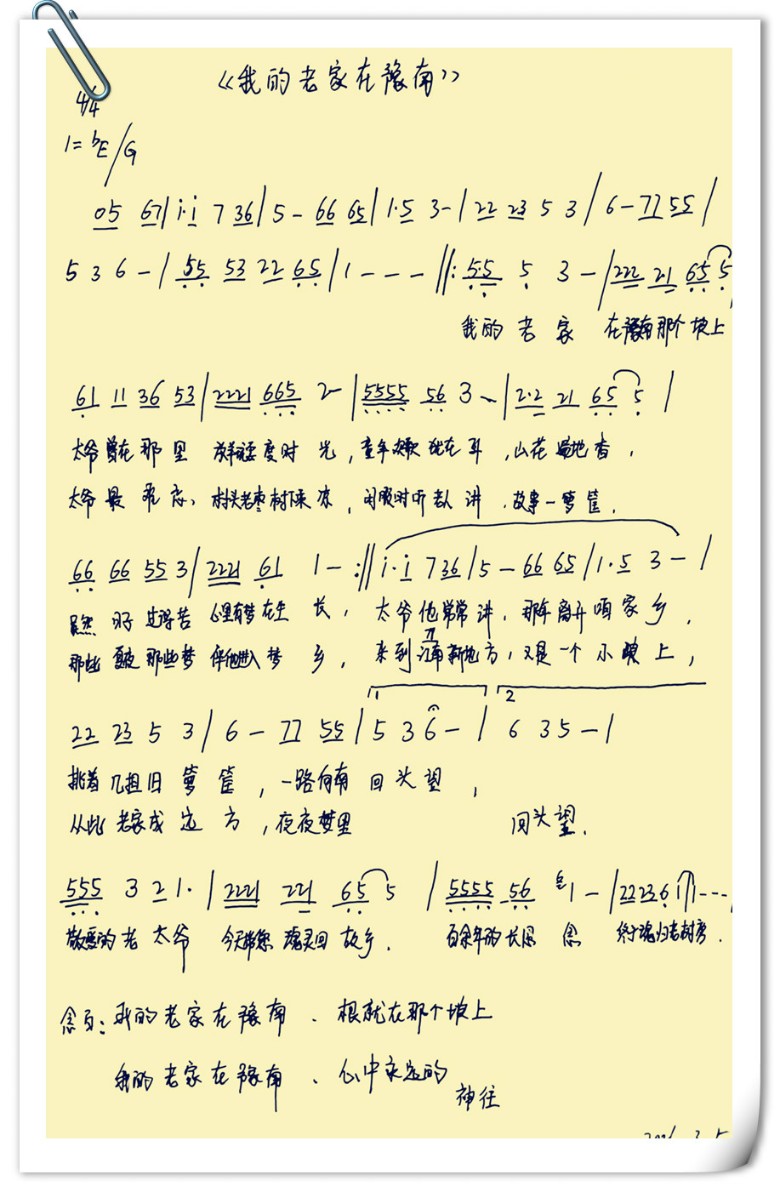 《我的老家在豫南》
4/4
1=ᵇE/G
05 67|i·i 7 36|5- 66 65|1·5 3-|22 23 5 3|6-77 55|
5 3 6 -|55 53 22 65|1---‖:5·5 5 3-|222 21 65 5
我的 老 家 在豫南那个 坡上
61 11 36 53|2221 665 2-|5555 56 3-|2·2 21 65 5|
太爷曾在那里 度时光, 在耳,山花遍地香,
太爷最 村头老枣树下乘凉,闲暇时听老人讲,故事一箩筐.
66 66 55 3|2221 61 1-:‖i·i 7 36|5-66 65|1·5 3-|
虽然 心里有梦在生长, 太爷他常常讲,那年离开咱家乡,
那些 那些梦 伴他进入梦乡, 来到江南新地方,又是一个小坡上,
1 2
22 23 5 3|6-77 55|5 3 6-|6 3 5-|
挑着几担旧箩筐,一路向南回头望,
从此老家成远方,夜夜梦里 回头望.
555 3 2 1·|2221 221 65 5|5555 56 1-|22236 1|1---
敬爱的老太爷 今天带您魂灵回故乡. 百余年的长思念 终于魂归老树旁.
念白:我的老家在豫南、根就在那个坡上
我的老家在豫南、心中永远的
神往